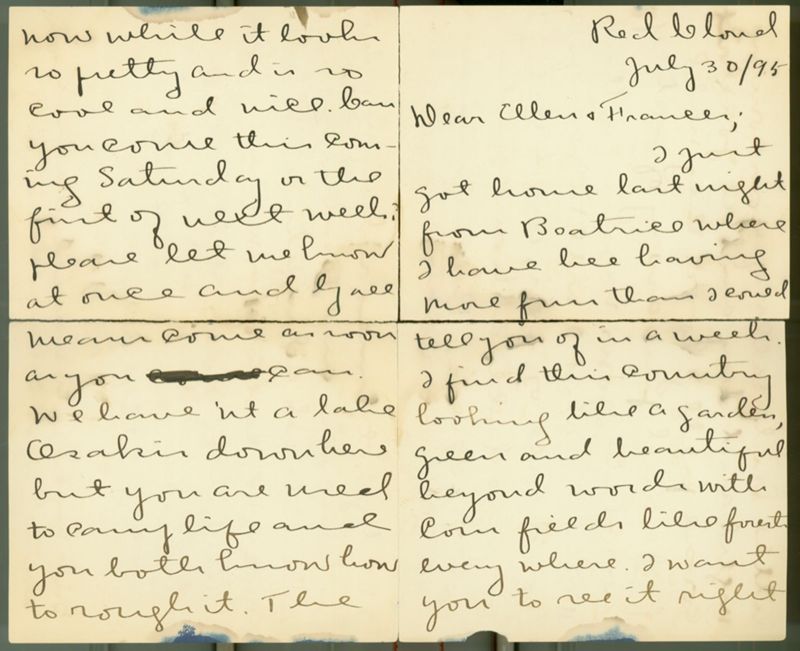 Red Cloud
July 30/95
Dear Ellen & Frances;
I just
got home last night
from Beatrice where
I have bee having
more fun than I could
tell you of in a week.
I find this country
looking like a garden,
green and beautiful
beyond words with
Corn fields like forests
every where. I want
you to see it right
now while it looks
so pretty and is so
cool and nice. Can
you come this com-
ing Saturday or the
first of next week?
please let me know
at once and by all
means come as soon
as you can.
We have 'nt a lake
Osakis down here
but you are used
to camp life and
you both know how
to rough it. The